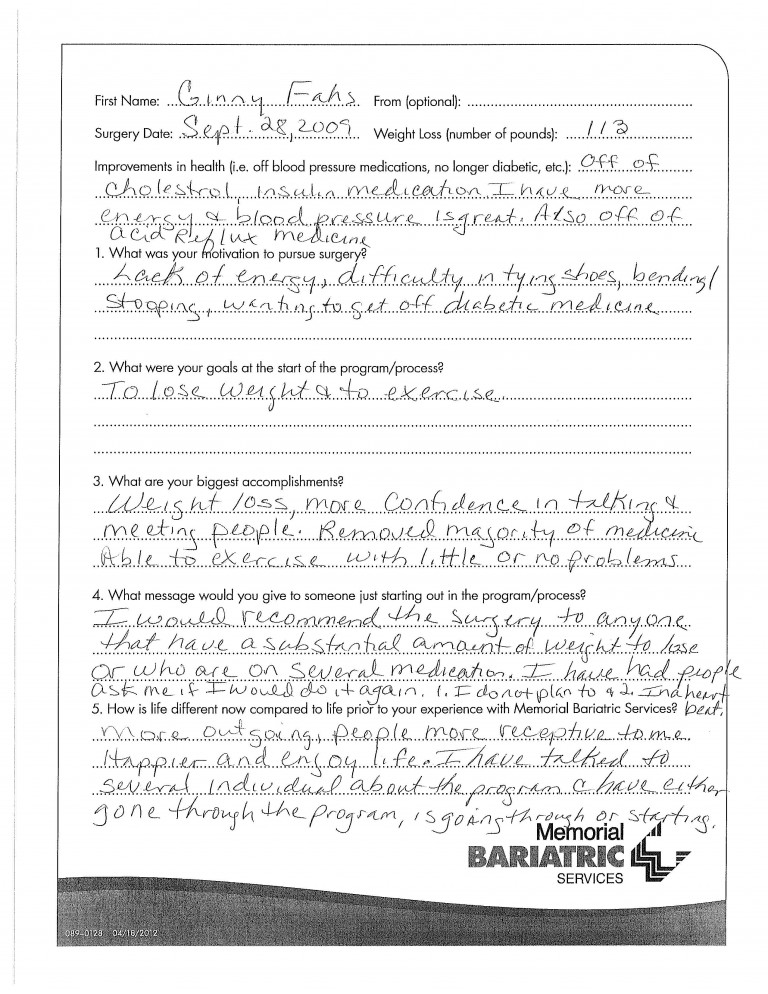 First Name: Ginny Fahs From (optional):
Surgery Date: Sept. 28, 2009 Weight Loss (number of pounds): 113
Improvements in health (i.e. off blood pressure medications, no longer diabetic, etc.): Off of
Cholestrol, insulin medication. I have more
energy & blood pressure is great. Also off of
acid Reflux medicine
1. What was your motivation to pursue surgery?
Lack of energy, difficulty in tying shoes, bending/
Stooping, wanting to get off diabetic medicine
2. What were your goals at the start of the program/process?
To lose weight & to exercise.
3. What are your biggest accomplishments?
Weight loss, more Confidence in talking &
meeting people. Removed majority of medicine
Able to exercise with little or no problems
4. What message would you give to someone just starting out in the program/process?
I would recommend the surgery to anyone
that have a substantial amount of weight to lose
or who are on several medication. I have had people
ask me if I would do it again. 1. I do not plan to & 2. In a heart
5. How is life different now compared to life prior to your experience with Memorial Bariatric Services? beat.
More outgoing, people more receptive to me
Happier and enjoy life. I have talked to
several individual about the program & have either
gone through the program, is going through or starting.
Memorial
BARIATRIC
SERVICES
089-0128 04/18/2012